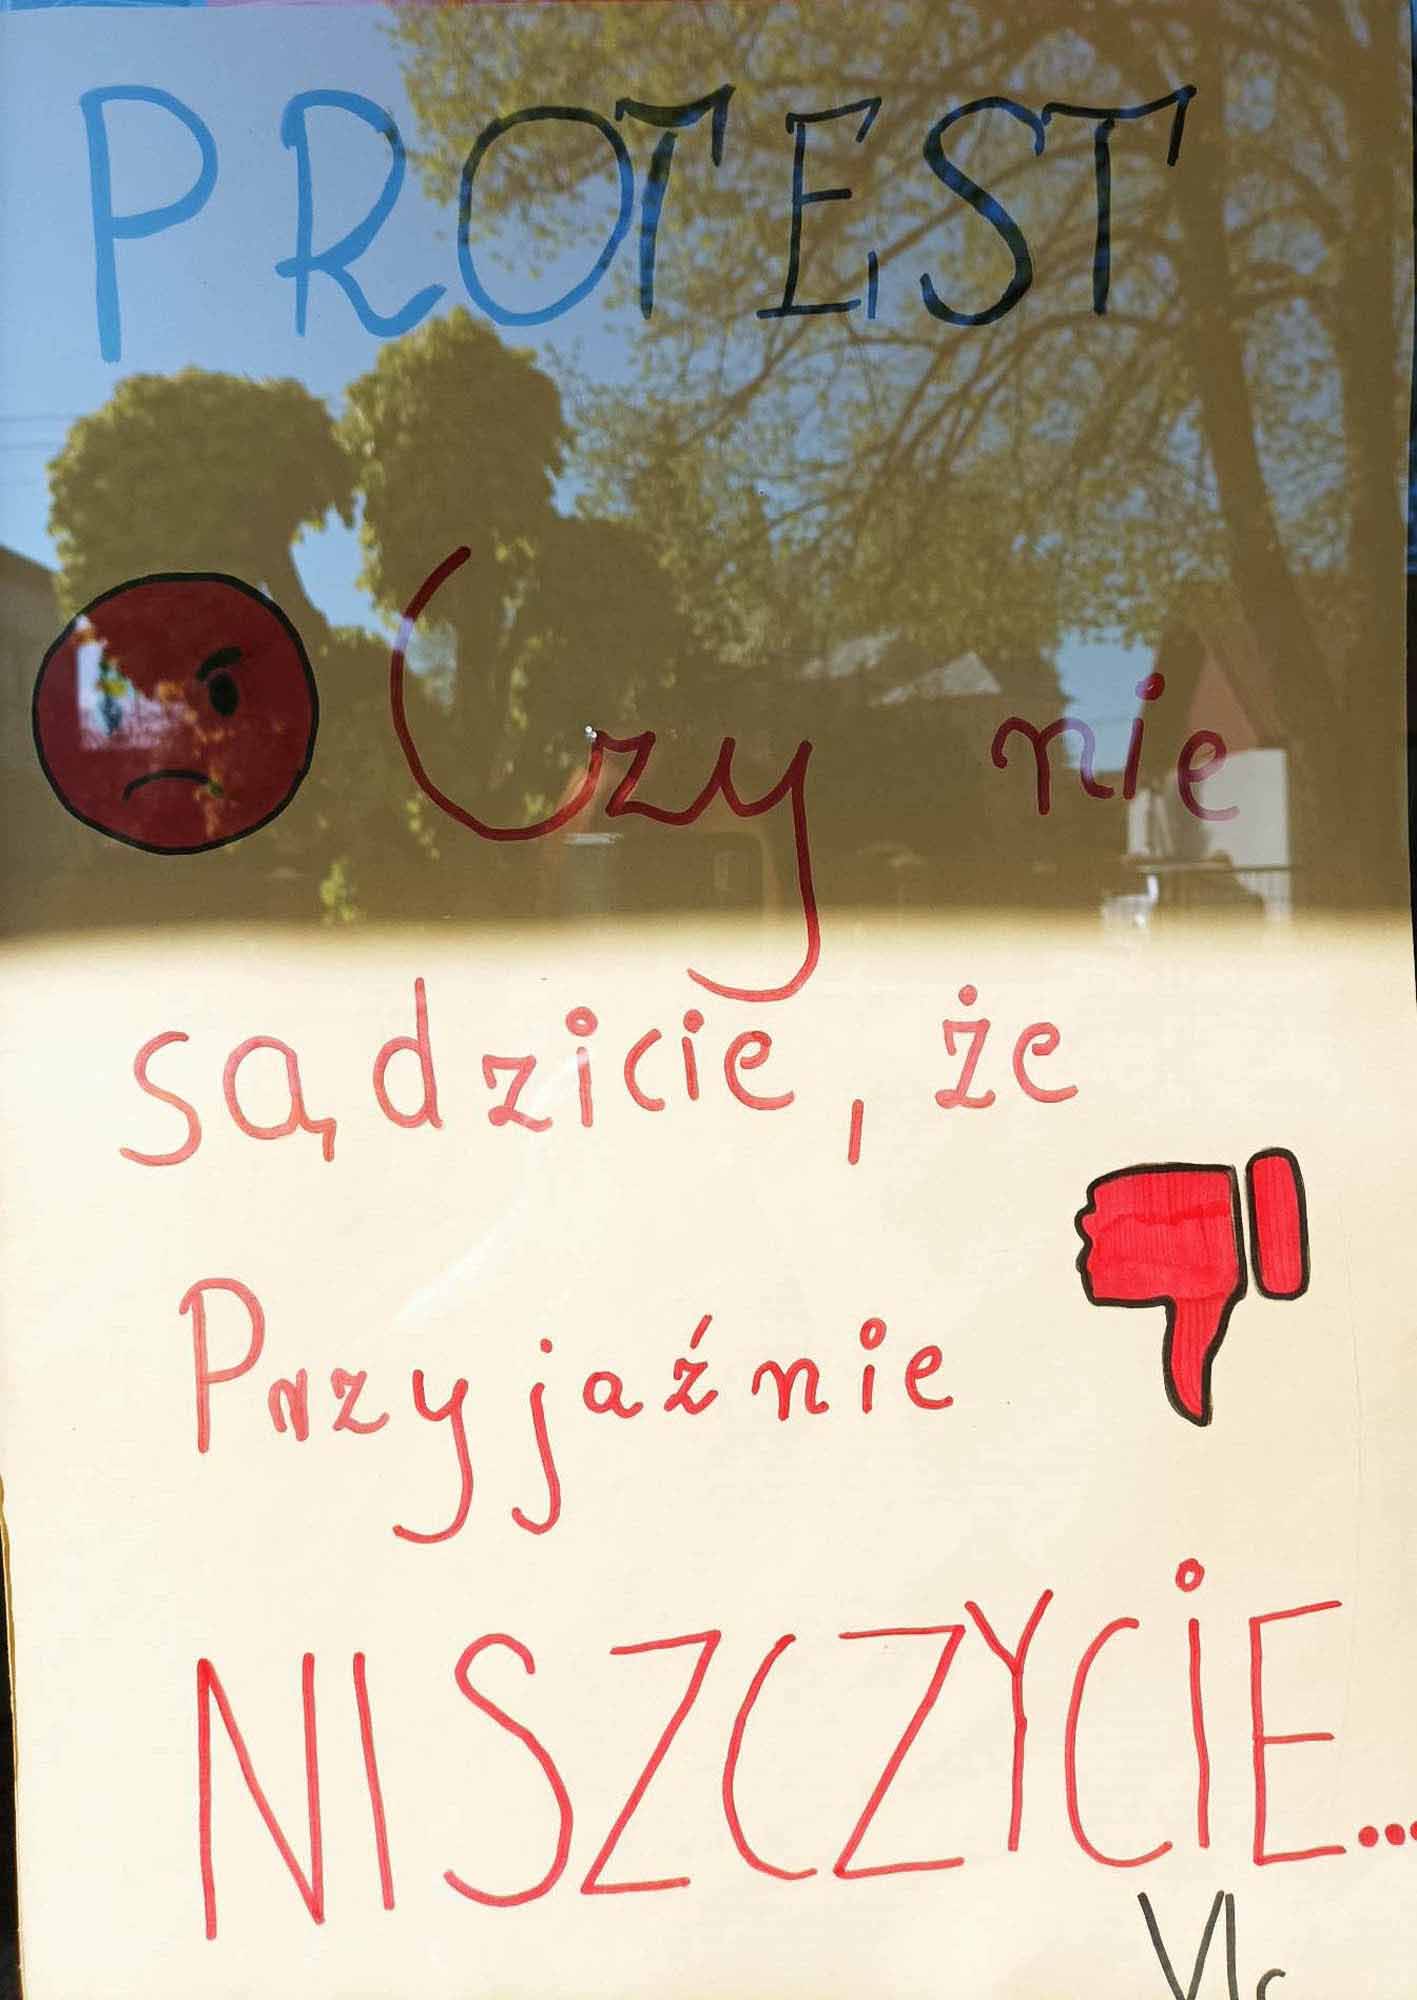 PROTEST
Czy nie
sądzicie, że
Przyjaźnie
NISZCZYCIE...
VIc